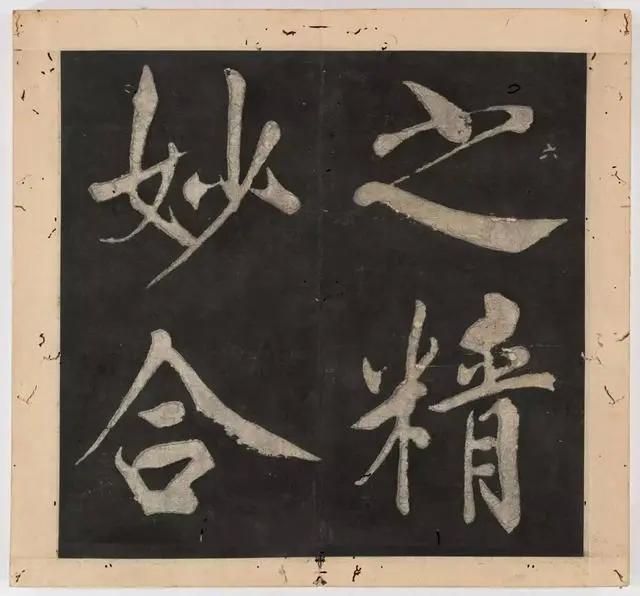 之精
妙合
六